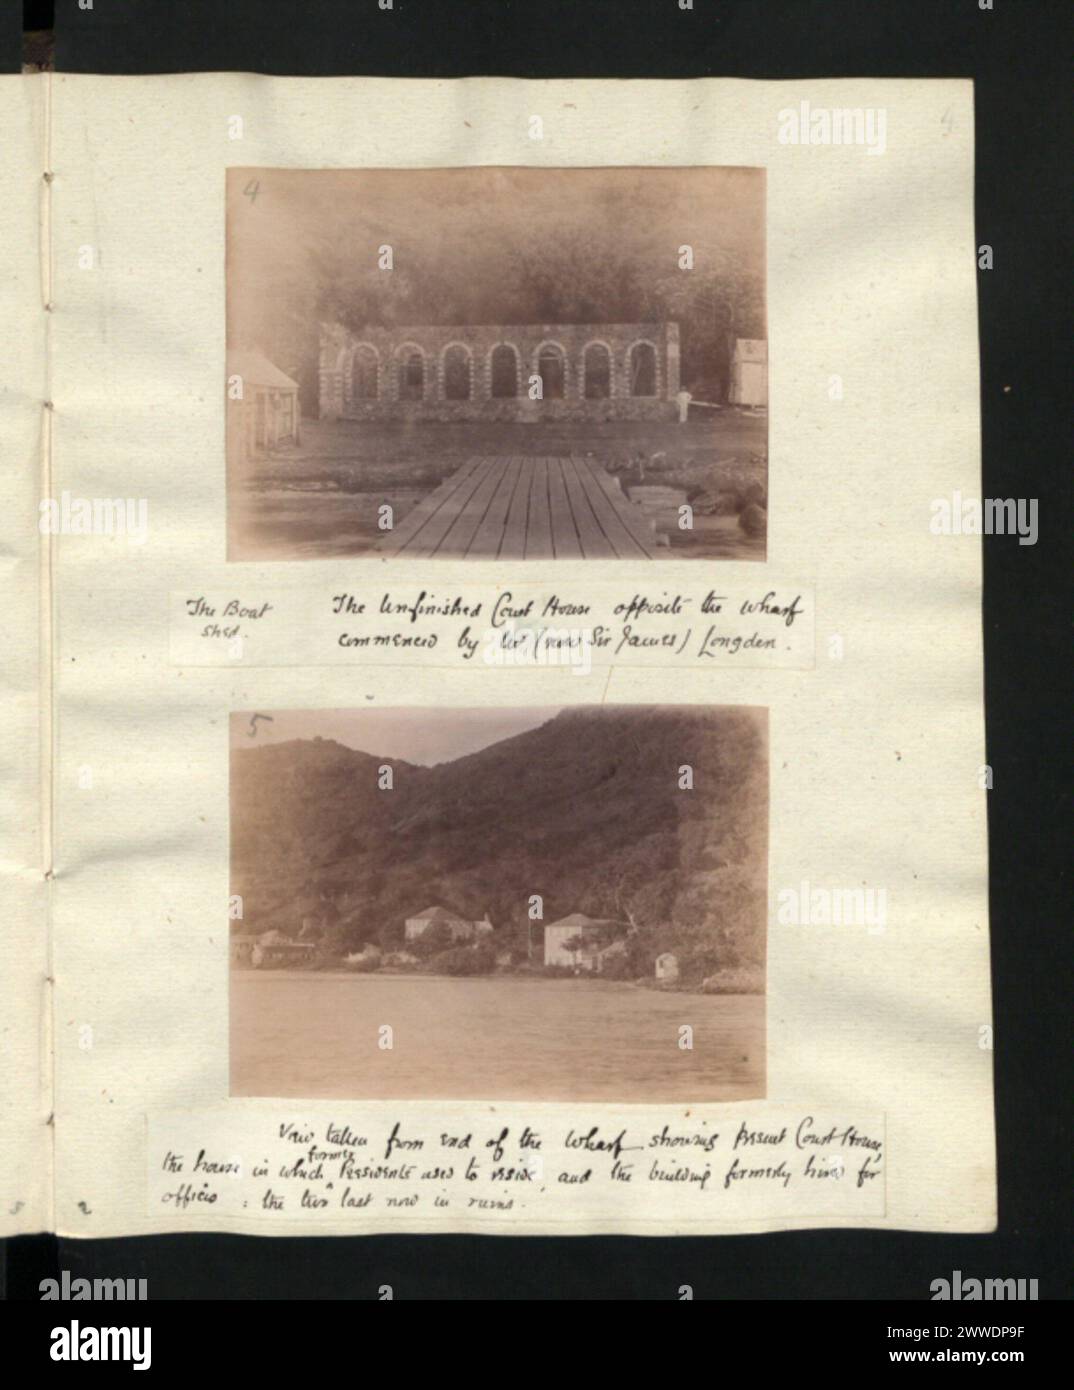 4
4
The Boat
shed.
The Unfinished Court House opposite the wharf
commenced by Mr (now Sir James) Longden.
5
View taken from end of the Wharf showing present Court House,
the house in which former Presidents used to reside, and the building formerly hired for
offices : the two last now in ruins.
3
2
alamy
alamy
alamy
alamy
alamy
alamy
alamy
Image ID: 2WWDP9F
www.alamy.com